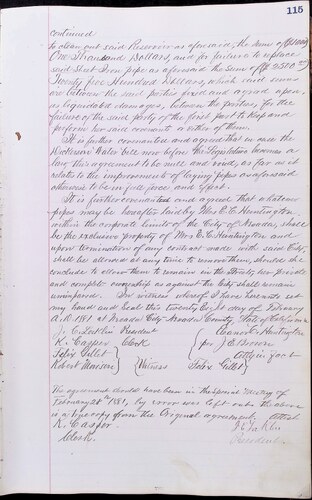 115
continued
to clean out said Reservoir as aforesaid, the sum of
One Thousand Dollars, and for failure to replace
said Sheet Iron pipe as aforesaid the sum of $2500
Twenty five Hundred Dollars, which said sums
are between the said parties fixed and agreed upon,
as liquidated damages, between the parties, for the
failure of the said party of the first part to keep and
perform her said covenants or either of them.
It is further covenanted and agreed that in case the
Water bill now before the Legislature becomes a
law this agreement to be null and void, as far as it
relates to the improvements of laying pipes as aforesaid
otherwise to be in full force and effect.
It is further covenanted and agreed that whatever
pipes may be hereafter laid by Mrs E. C. Huntington,
within the corporate limits of the City of Nevada, shall
be the exclusive property of Mrs E. C. Huntington and
upon termination of any contract made with said City,
shall be allowed at any time to remove them, should she
conclude to allow them to remain in the Streets, her private
and complete ownership as against the City shall remain
unimpaired. In witness whereof I have hereunto set
my hand and seal this twenty day of February
A.D. 1881 at Nevada City Nevada County State of
President Huntington
K. Casper Clerk per J. C. Brown
Felix Gillet atty in fact
Robert Witness Felix Gillet
The agreement should have been in the Special meeting of
February 28th 1881, by error was left out. the above
is a true copy from the Original agreement. attest
K. Casper
Clerk. President